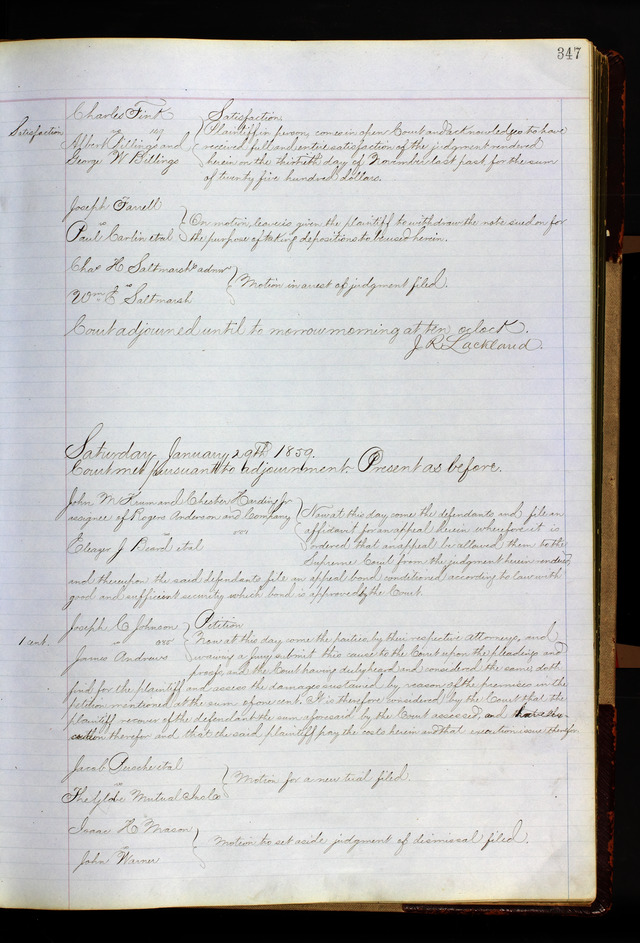 347
Charles Fink
Satisfaction
Satisfaction
vs
Plaintiff in person, comes in open Court and acknowledges to have
Albert Billings and
received full and entire satisfaction of the judgment rendered
George W Billings
herein on the thirtieth day of November last past for the sum
of twenty five hundred dollars.
Joseph Farrell
On motion, leave is given the plaintiff to withdraw the note sued on for
vs
Paul Carlin et al
the purpose of taking depositions to be used herein.
Chas H Saltmarsh admr
vs
Motion in arrest of judgment filed.
Wm E Saltmarsh
Court adjourned until to morrow morning at ten oclock.
J. R. Lackland
Saturday January 29th 1859.
Court met pursuant to adjournment. Present as before.
John M Krum and Chester Harding Jr
Now at this day come the defendants and file an
assignee of Rogers Anderson and Company
affidavit for an appeal herein wherefore it is
vs
Eleazer J Beard et al
ordered that an appeal be allowed them to the
Supreme Court from the judgment herein rendered,
and thereupon the said defendants file an appeal bond conditioned according to law with
good and sufficient security which bond is approved by the Court.
Joseph C Johnson
Petition
1 cent.
vs
Now at this day come the parties by their respective attorneys, and
James Andrews
waiving a jury submit this cause to the Court upon the pleadings and
proofs, and the Court having duly heard and considered the same doth
find for the plaintiff and assess the damages sustained by reason of the premises in the
petition mentioned at the sum of one cent. It is therefore considered by the Court that the
plaintiff recover of the defendant the sum aforesaid by the Court assessed, and
therefor and that the said plaintiff pay the costs herein and that execution issue therefor
Jacob et al
vs
Motion for a new trial filed.
The Globe Mutual Ins Co
Isaac H Mason
vs
Motion to set aside judgment of dismissal filed.
John Warner